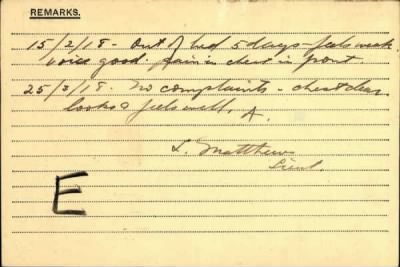 REMARKS.
15/2/18 - Out of bed 5 days - feels weak
voice good. pain in chest in front.
25/2/18. No complaints - chest clear.
looks & feels well. A.
L. Matthews
Lieut.
E